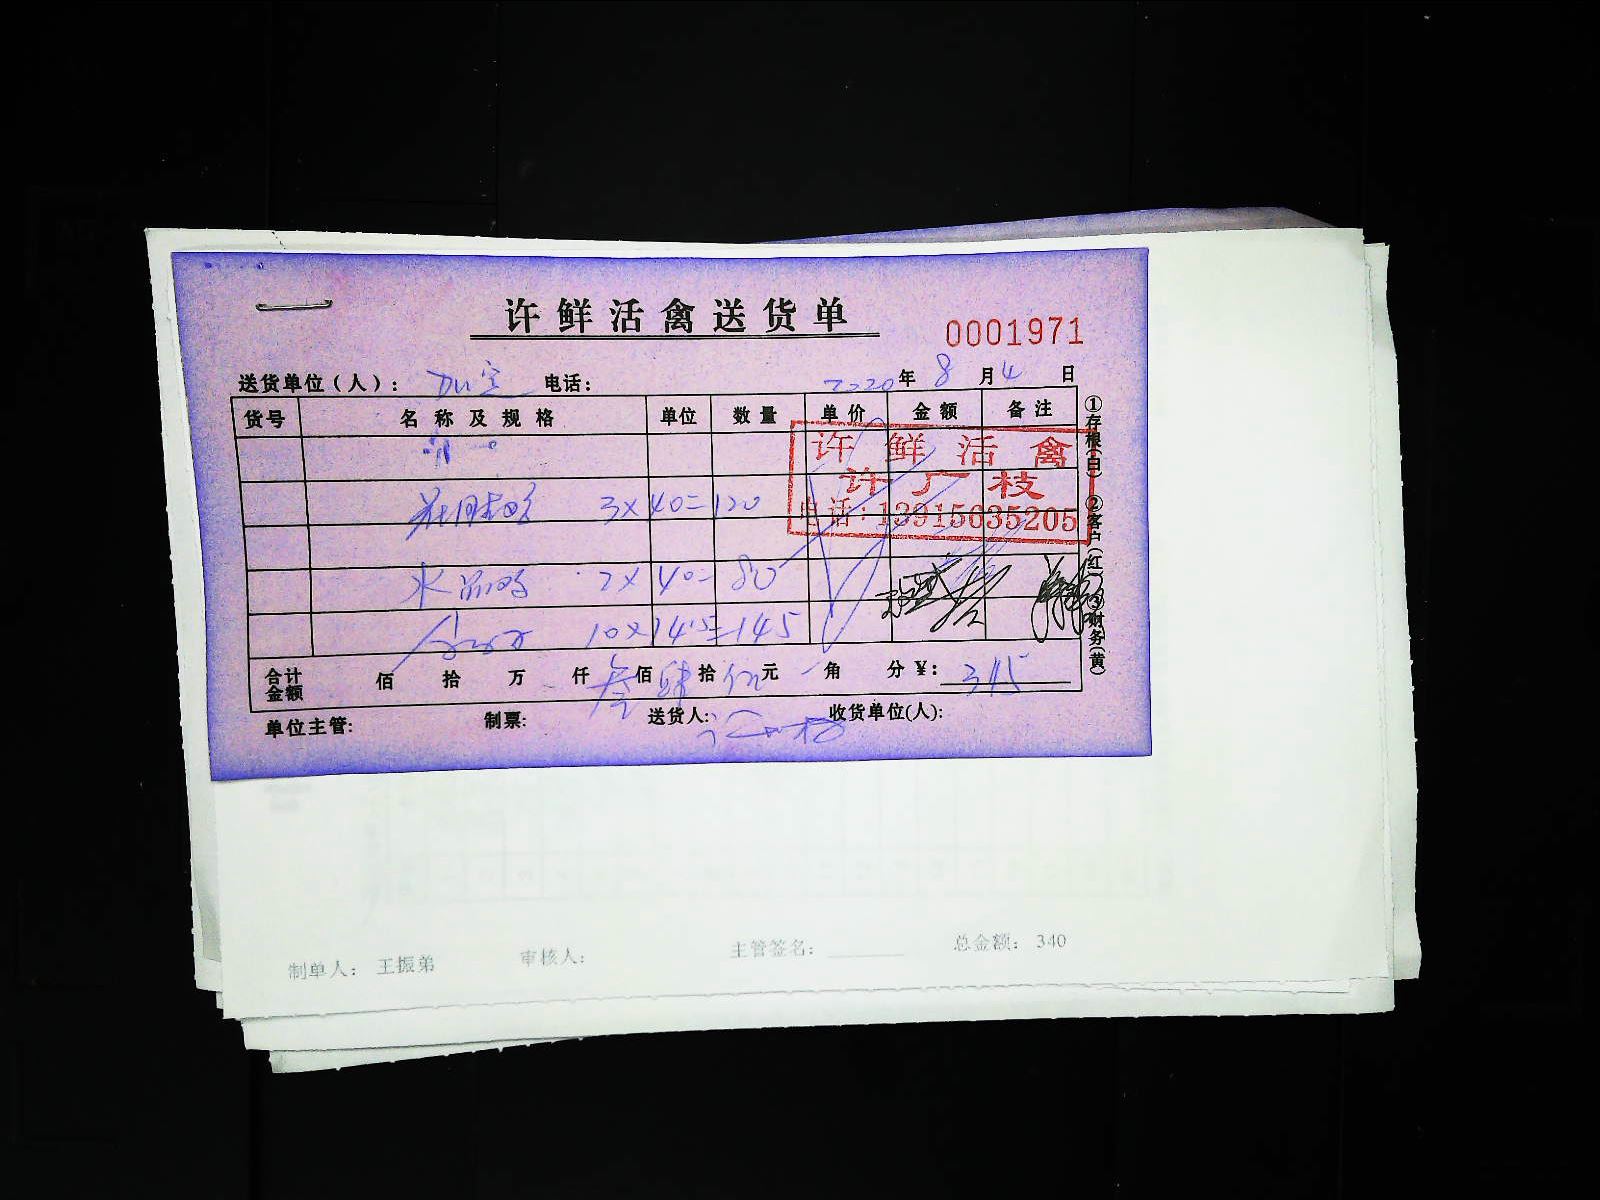 许鲜活禽送货单
0001971
送货单位（人）： 电话： 2020年8月4日
货号 名称及规格 单位 数量 单价 金额 备注
许鲜活禽
许广枝
电话：13915635205
3×40=120
水晶鸡 2×40=80
10×14.5=145
合计金额 佰 拾 万 仟 叁佰肆拾伍元 角 分 ¥：345
单位主管： 制票： 送货人： 收货单位(人)：
①存根(白) ②客户(红) ③财务(黄)
制单人： 王振弟 审核人： 主管签名： 总金额： 340